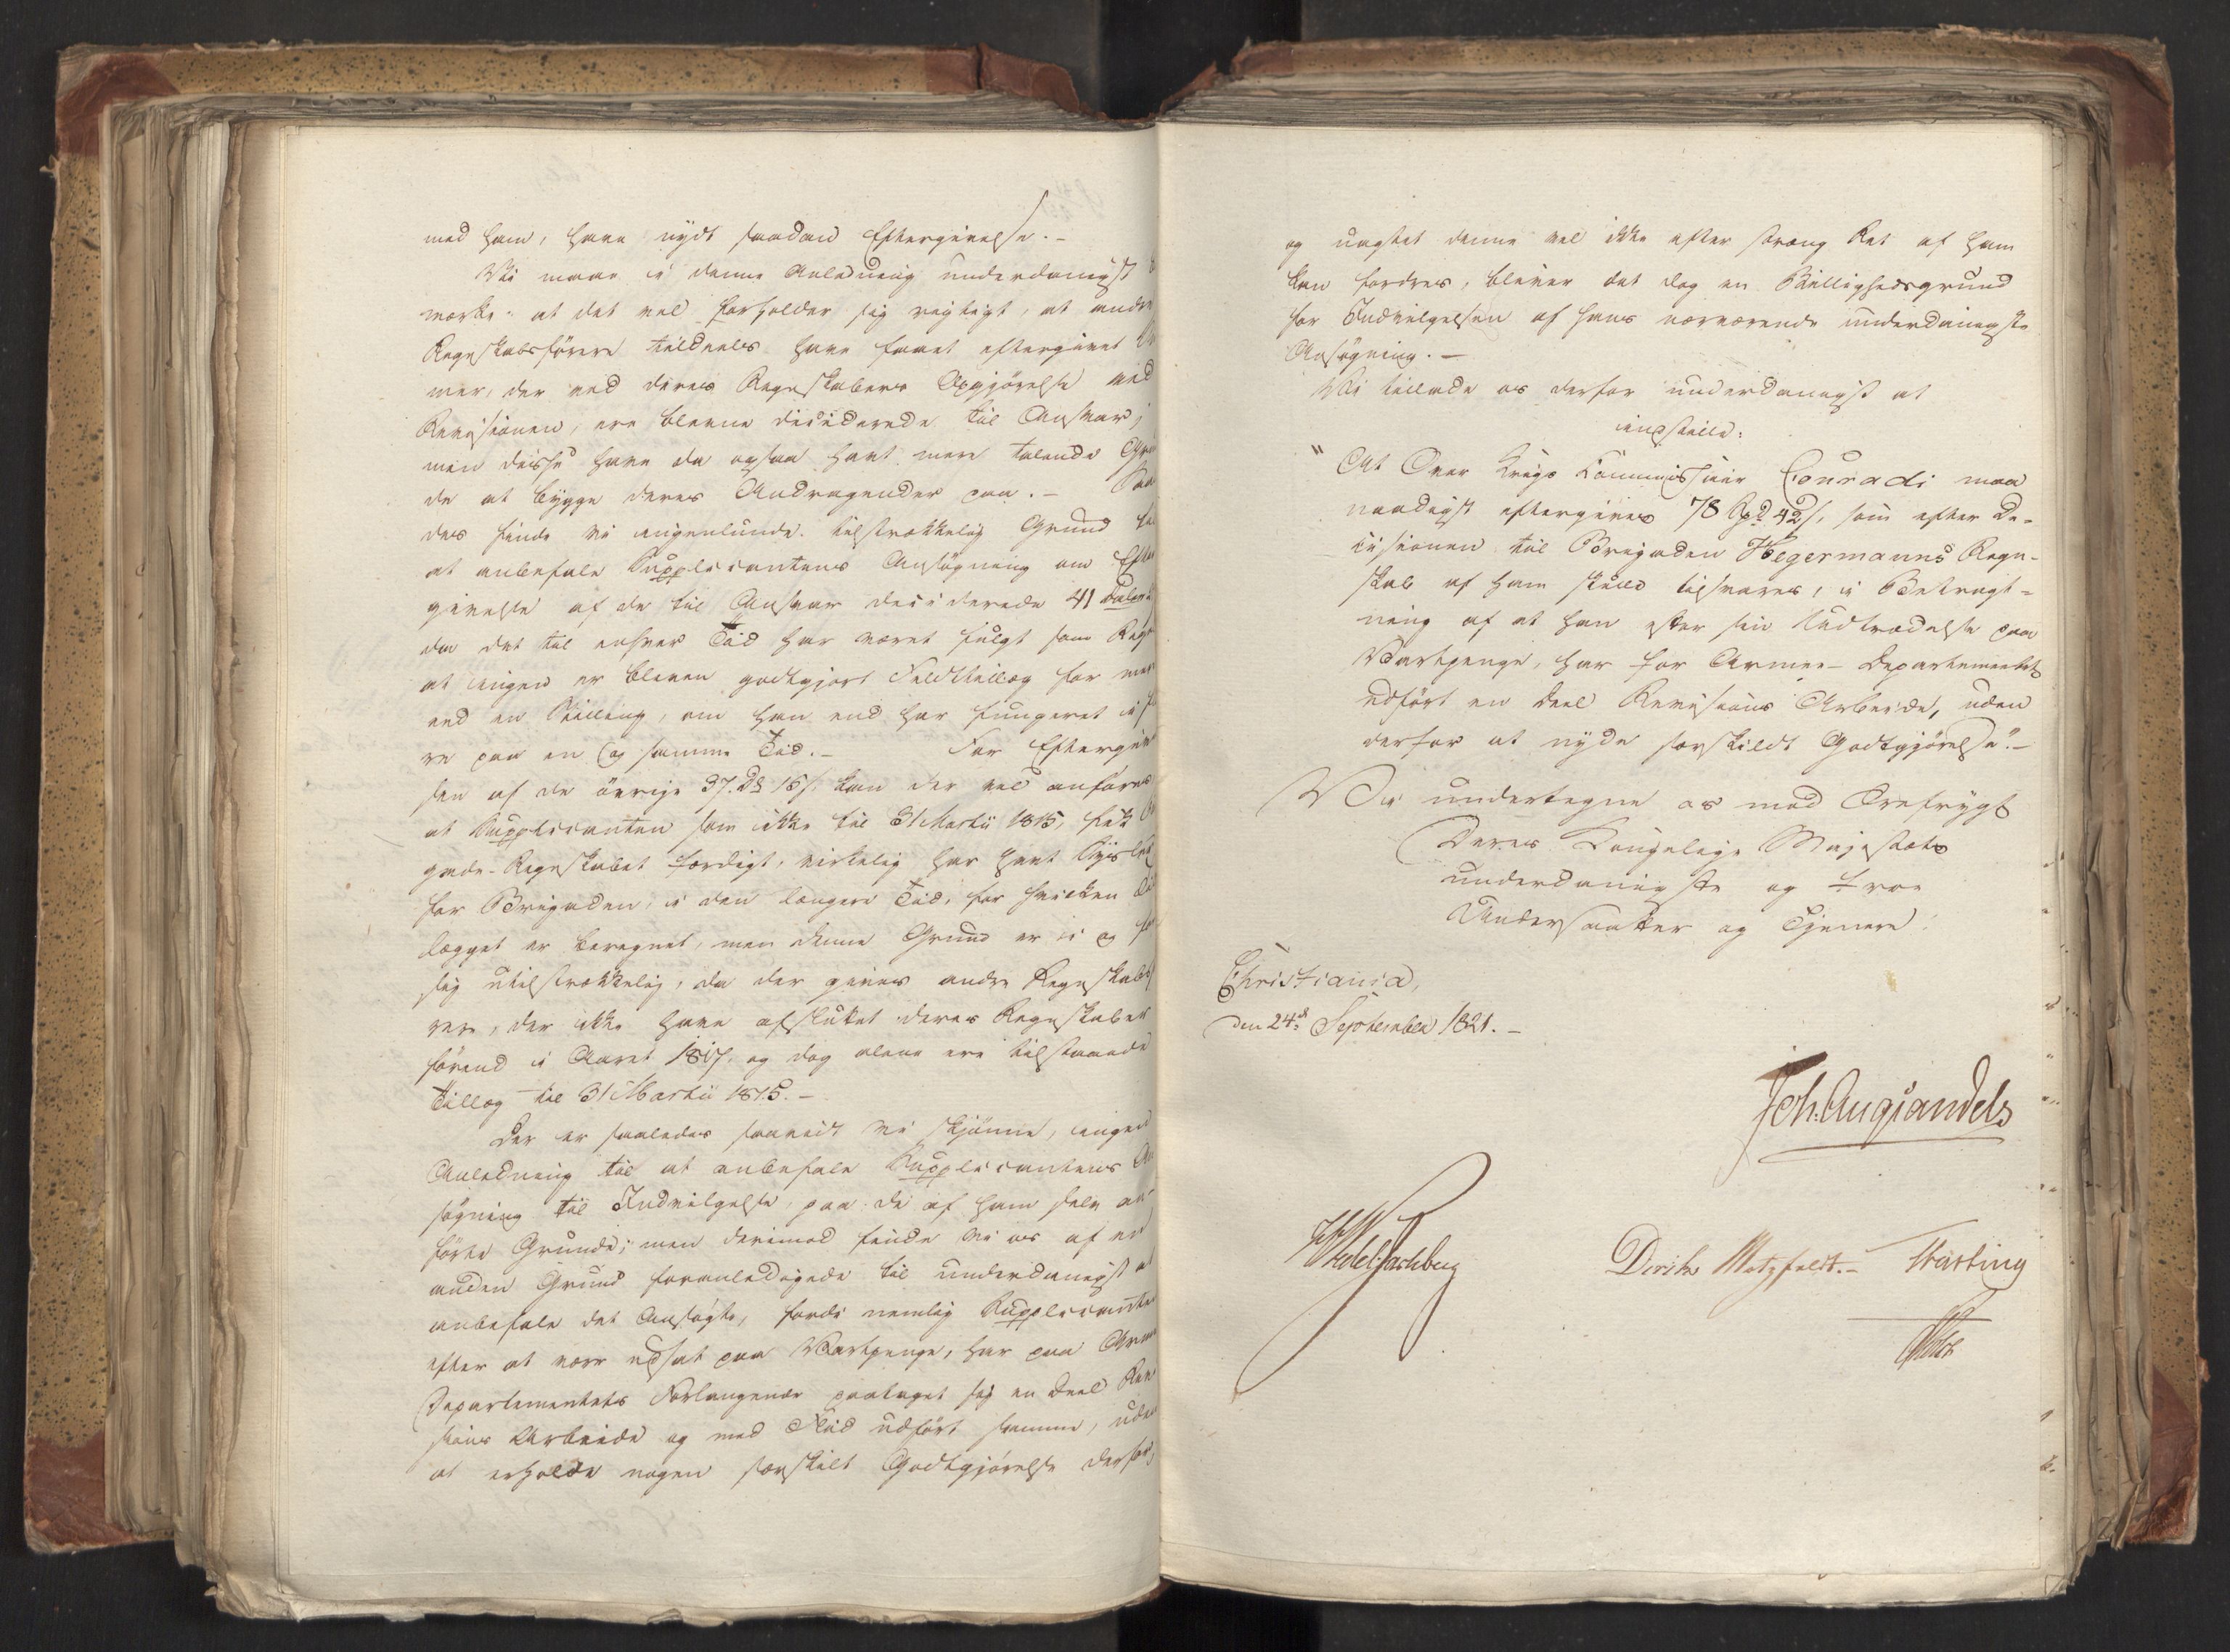 med ham, have nydt saadan Eftergivelse. –
Vi maae i denne Anledning underdanigst
mærke: at det vel forholder sig rigtigt, at andre
Regnskabsførere tildeels have faaet eftergivet
mer, der ved deres Regnskabers Opgjørelse ved
Revisionen, ere blevne deciderede til Ansvar;
men disse have da ogsaa havt mere talende Gru
de at bygge deres Andragender paa. – Saa
des finde vi ingenlunde tilstrækkelig Grund til
at anbefale Supplicantens Ansøgning om Efter
givelse af de til Ansvar deciderede 41 Daler
da det til enhver Tid har været fulgt som Reg
at ingen er bleven godtgjort Feldttillæg for mere
end en Stilling, om han end har fungeret i fl
re paa en og samme Tid. – For Eftergiv
sen af de övrige 37. Dr 16 s. kan der vel anføres
at Supplicanten som ikke til 31 Martii 1815, fik
gade-Regnskabet færdigt, virkelig har havt Syssel
for Brigaden, i den længere Tid, for hvilken Til
lægget er beregnet, men denne Grund er i og for
sig utilstrækkelig, da der gives andre Regnskabs
rere, der ikke have afsluttet deres Regnskaber
førend i Aaret 1817, og dog alene ere tilstaaede
Tillæg til 31 Martii 1815. –
Der er saaledes saavidt vi skjønne, ingen
Anledning til at anbefale Supplicantens An
søgning til Indvilgelse, paa de af ham selv an-
førte Grunde; men derimod finde vi os af en
anden Grund foranledigede til underdanigst at
anbefale det Ansøgte, fordi nemlig Supplicanten
efter at være udsat paa Vartpenge, har paa Armee
Departementets Forlangende paataget sig en Deel Revi
sions Arbeide og med Flid udført samme, uden
at erholde nogen særskilt Godtgjørelse derfor,
og uagtet denne vel ikke efter stræng Ret af ham
kan fordres, bliver det dog en Billighedsgrund
for Indvilgelsen af hans nærværende underdanigste
Ansøgning. –
Vi tillade os derfor underdanigst at
indstille:
"At Over Krigs Commissair Conradi maa
naadigst eftergives 78 Spd 42 s, som efter De-
cisionen til Brigaden Hegermanns Regn-
skab af ham skulle tilsvares, i Betragt-
ning af at han efter sin Udtrædelse paa
Vartpenge, har for Armee-Departementet
udført en Deel Revisions Arbeide, uden
derfor at nyde særskildt Godtgjørelse". –
Vi undertegne os med Ærefrygt
Deres Kongelige Majestæts
underdanigste og troe
Undersaatter og Tjenere.
Christiania,
den 24de September 1821. –
Joh: Aug: Sandels
HWedelJarlsberg
Diriks Motzfeldt. – Krebs Fasting